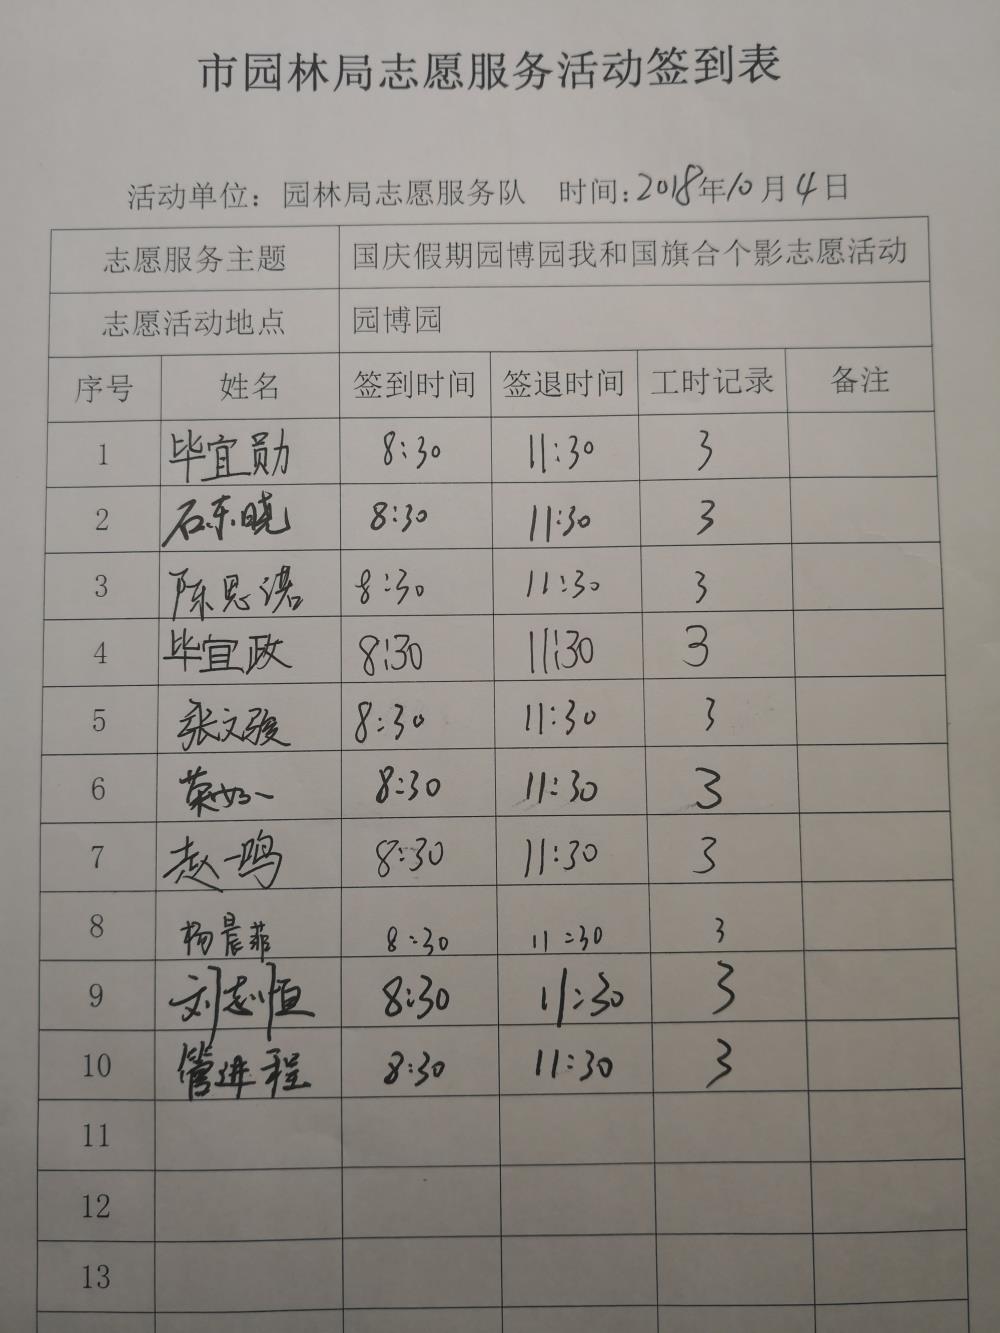 市园林局志愿服务活动签到表
活动单位：园林局志愿服务队 时间：2018年10月4日
志愿服务主题 国庆假期园博园我和国旗合个影志愿活动
志愿活动地点 园博园
序号 姓名 签到时间 签退时间 工时记录 备注
1 毕宜勋 8:30 11:30 3
2 石东晓 8:30 11:30 3
3 陈思诺 8:30 11:30 3
4 毕宜政 8:30 11:30 3
5 张文骏 8:30 11:30 3
6 8:30 11:30 3
7 赵一鸣 8:30 11:30 3
8 杨晨菲 8:30 11:30 3
9 刘志恒 8:30 11:30 3
10 管进程 8:30 11:30 3
11
12
13